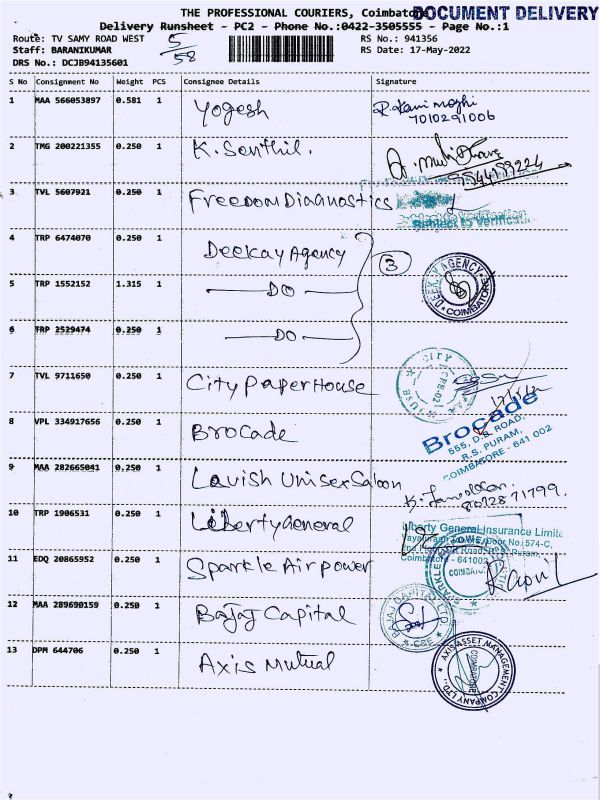 THE PROFESSIONAL COURIERS, Coimbatore
DOCUMENT DELIVERY
Delivery Runsheet - PC2 - Phone No.:0422-3505555 - Page No.:1
Route: TV SAMY ROAD WEST 5/58 RS No.: 941356
Staff: BARANIKUMAR RS Date: 17-May-2022
DRS No.: DCJB94135601
S No Consignment No Weight PCS Consignee Details Signature
1 MAA 566053897 0.581 1 Yogesh R. Kani mozhi
7010291006
2 TMG 200221355 0.250 1 K. Senthil.
9544189224
3 TVL 5607921 0.250 1 Freedom Diagnostics
Subject to Verification
4 TRP 6474070 0.250 1 Deekay Agency 3
DEEKAY AGENCY
COIMBATORE
5 TRP 1552152 1.315 1 DO
6 TRP 2529474 0.250 1 DO
7 TVL 9711650 0.250 1 City Paper House
CITY
8 VPL 334917656 0.250 1 Brocade
Brocade
555, D.B. ROAD,
R.S. PURAM,
COIMBATORE - 641 002
9 MAA 282665041 0.250 1 Lavish Uniser Saloon
8072871799.
10 TRP 1906531 0.250 1 Liberty General
Liberty General Insurance Limite
Door No.: 574-C,
Coimbatore - 641002
11 EDQ 20865952 0.250 1 Sparkle Air power
SPARKLE
COIMBATORE
Kapil
12 MAA 289690159 0.250 1 Bajaj Capital
BAJAJ CAPITAL LTD
CBE
13 DPM 644706 0.250 1 Axis Mutual
AXIS ASSET MANAGEMENT COMPANY LTD.,
COIMBATORE